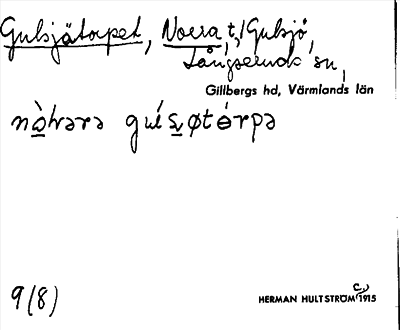 Gulsjätorpet, Norra t./Gulsjö,
Långseruds sn,
Gillbergs hd, Värmlands län
nòhərə gúʹsøtórpə
9(8)
HERMAN HULTSTRÖM C. 1915